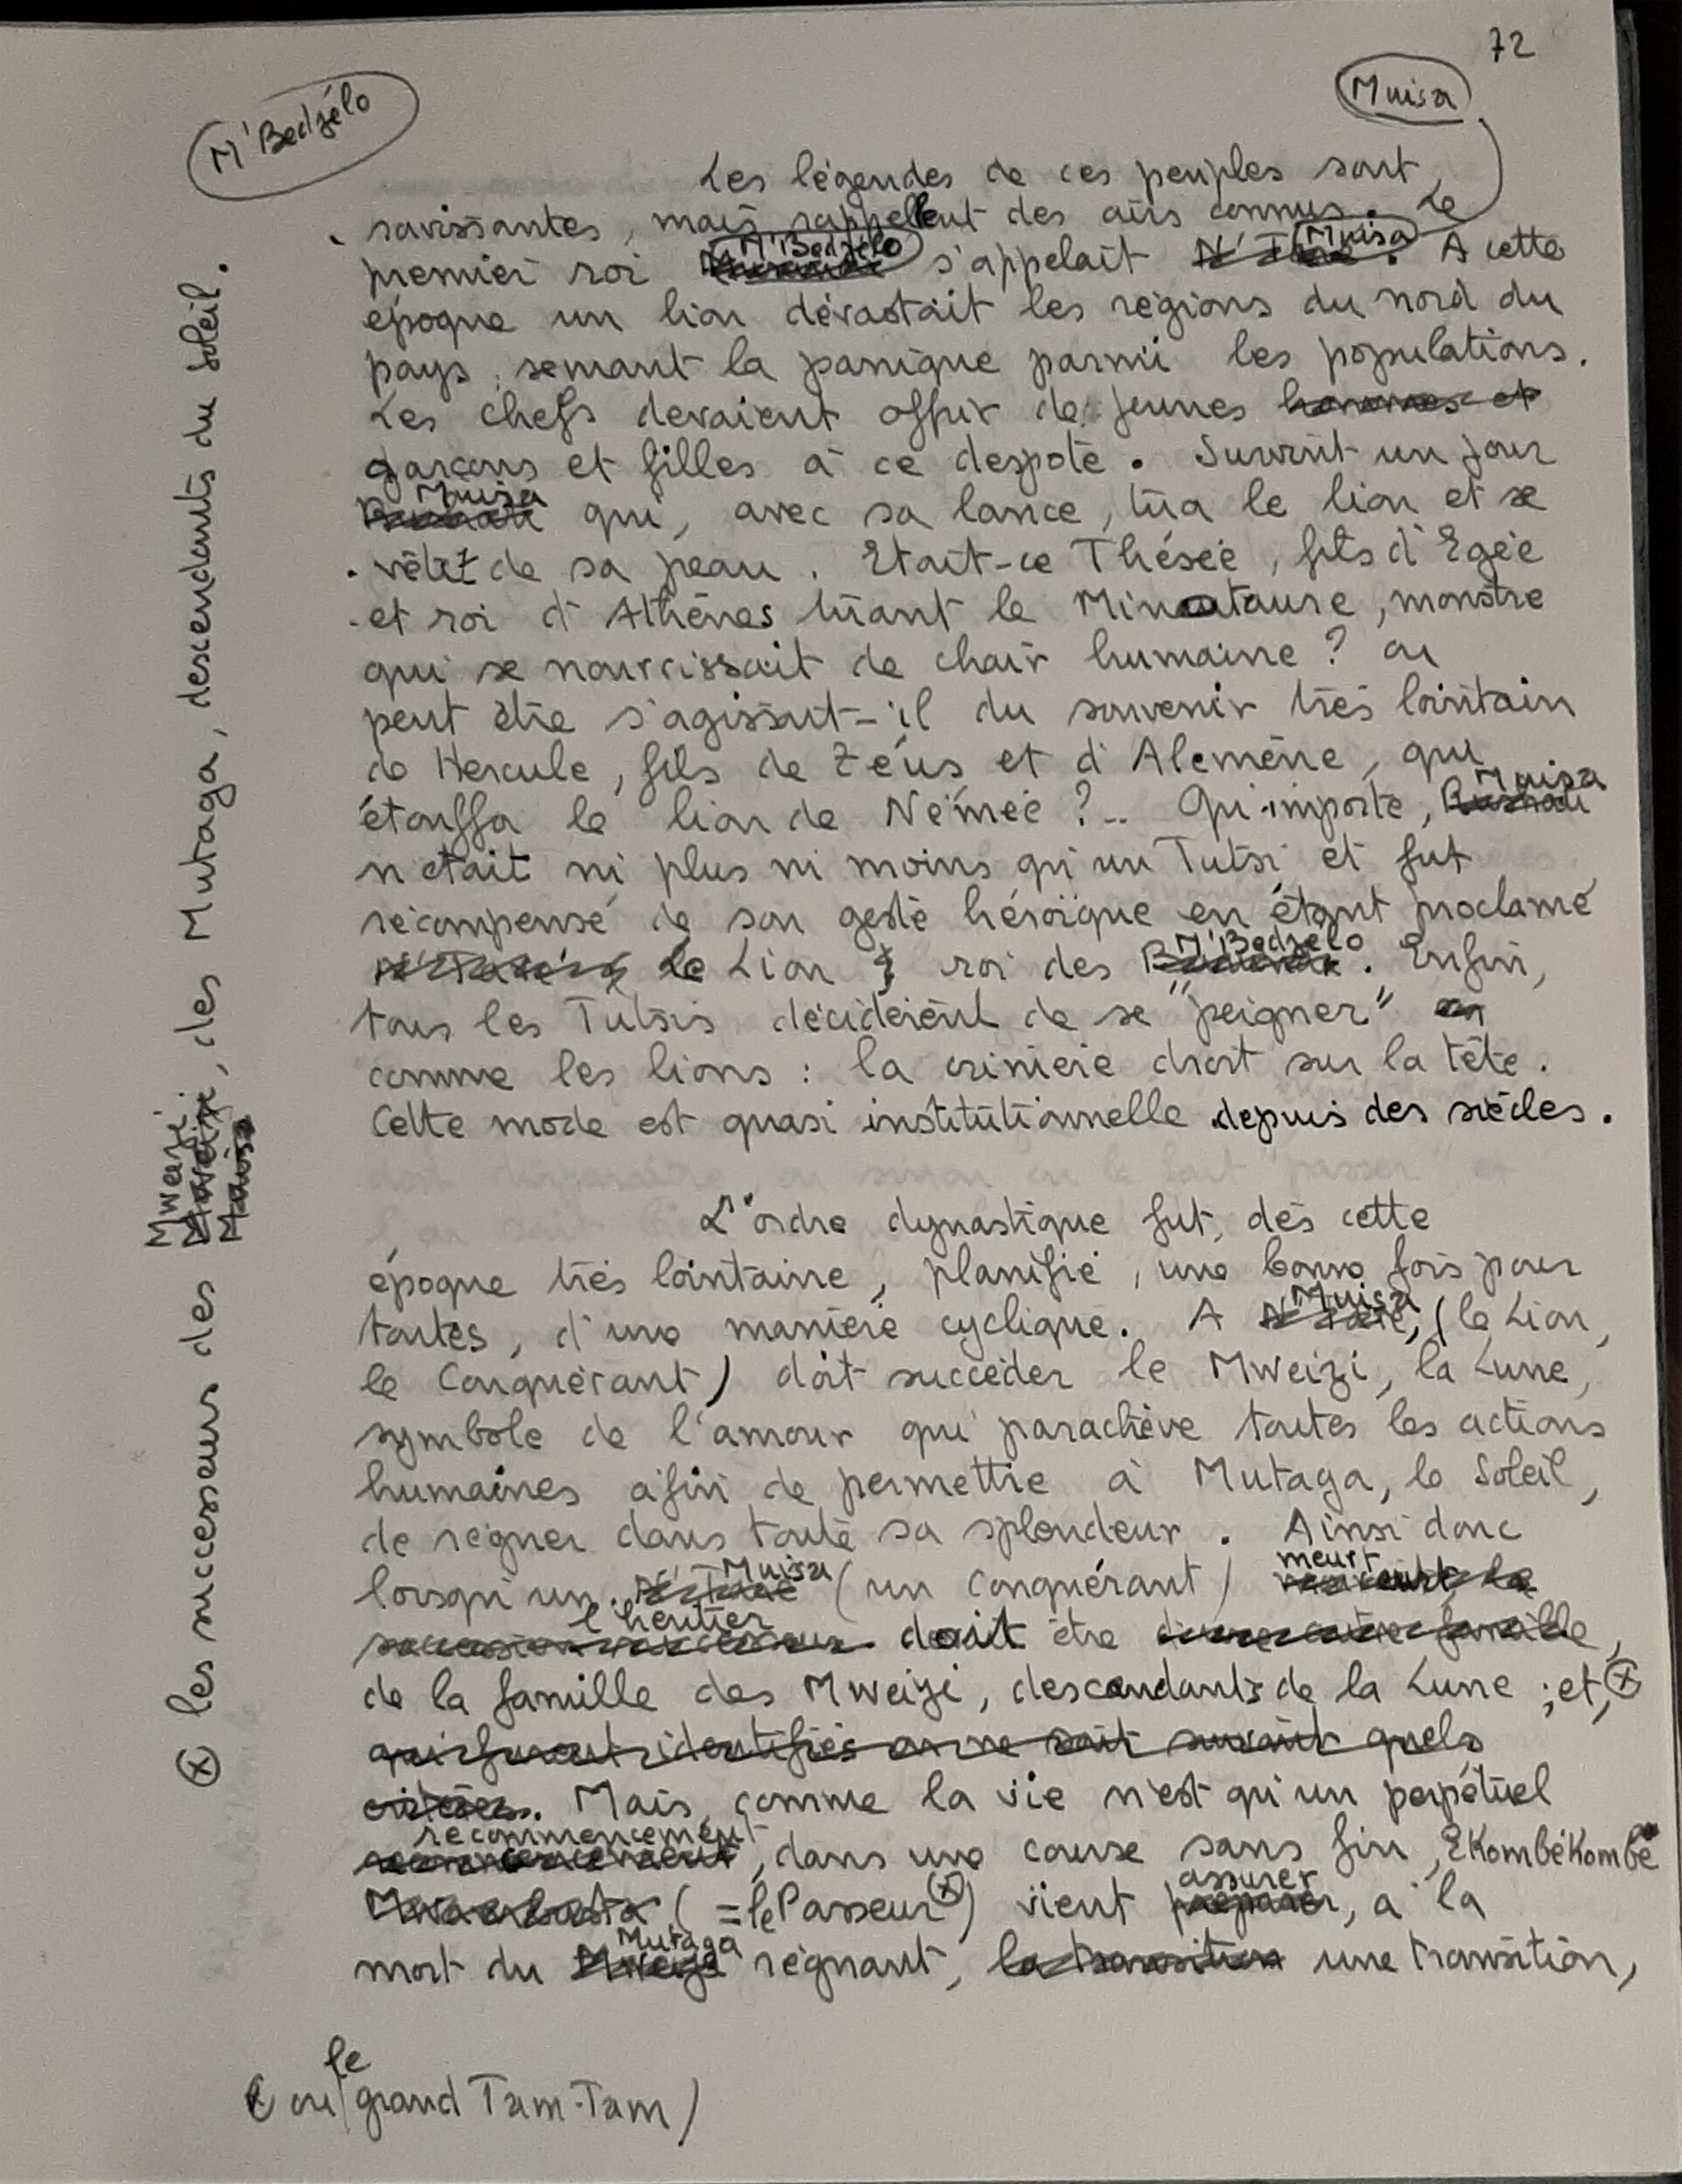 72
M'Bedzélo
Muisa
Les légendes de ces peuples sont
ravissantes, mais rappellent des airs connus. Le
premier roi M'Bedzélo s'appelait Muisa. A cette
époque un lion dévastait les régions du nord du
pays, semant la panique parmi les populations.
Les chefs devaient offrir de jeunes hommes et
garçons et filles à ce despote. Survint un jour
Muisa qui, avec sa lance, tua le lion et se
vêtit de sa peau. Etait-ce Thésée, fils d'Egée
et roi d'Athènes tuant le Minotaure, monstre
qui se nourrissait de chair humaine ? ou
peut être s'agissait-il du souvenir très lointain
de Hercule, fils de Zéus et d'Alemène, qui
étouffa le lion de Némée ?.. Qu'importe, Muisa
n'était ni plus ni moins qu'un Tutsi et fut
récompensé de son geste héroïque en étant proclamé
le Lion, roi des M'Bedzélo. Enfin,
tous les Tutsis décidèrent de se "peigner"
comme les lions : la crinière droit sur la tête.
Cette mode est quasi institutionnelle depuis des siècles.
L'ordre dynastique fut, dès cette
époque très lointaine, planifié, une bonne fois pour
toutes, d'une manière cyclique. A Muisa, (le Lion,
le Conquérant) doit succéder le Mweizi, la Lune,
symbole de l'amour qui parachève toutes les actions
humaines afin de permettre à Mutaga, le Soleil,
de régner dans toute sa splendeur. Ainsi donc
lorsqu'un Muisa (un conquérant) meurt
l'héritier doit être d'une autre famille,
de la famille des Mweizi, descendants de la Lune ; et, ⊗
qui furent identifiés on ne sait suivant quels
critères. Mais, comme la vie n'est qu'un perpétuel
recommencement, dans une course sans fin, Ekombékombé
(= le Passeur ⊗) vient assurer, à la
mort du Mutaga régnant, la transition une transition,
(ou le grand Tam-Tam)
⊗ les successeurs des Mweizi, des Mutaga, descendants du soleil.
Muisa